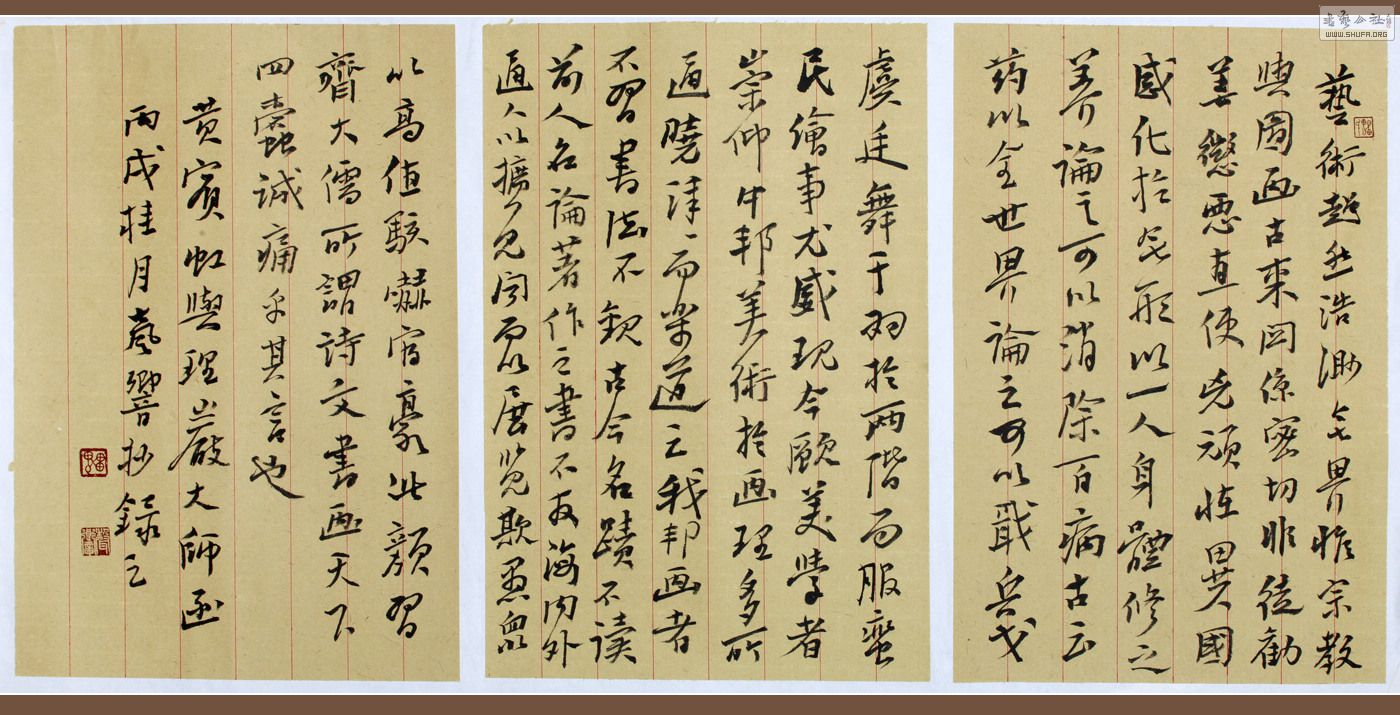 藝術超然浩渺之界惟宗教
與圖画古来関係密切非徒勸
善懲惡直使兇頑性異國
感化於無形以一人身體修之
养論之可以消除百病古云
药以全世界論之可以戢兵戈
虞廷舞干羽於两階而服蛮
民繪事尤盛现今歐美學者
崇仰中邦美術於画理多所
通曉津津而樂道之我邦画者
不習書法不観古今名蹟不读
前人名論著作之書不友海内外
通人以擴見闻而以展览欺愚衆
以高值駭嚇富豪此顏習
齋大儒所謂詩文書画天下
四蠹誠痛乎其言也
黄賓虹與理嚴大師函
丙戌桂月 響抄錄之
書藝公社
WWW.SHUFA.ORG